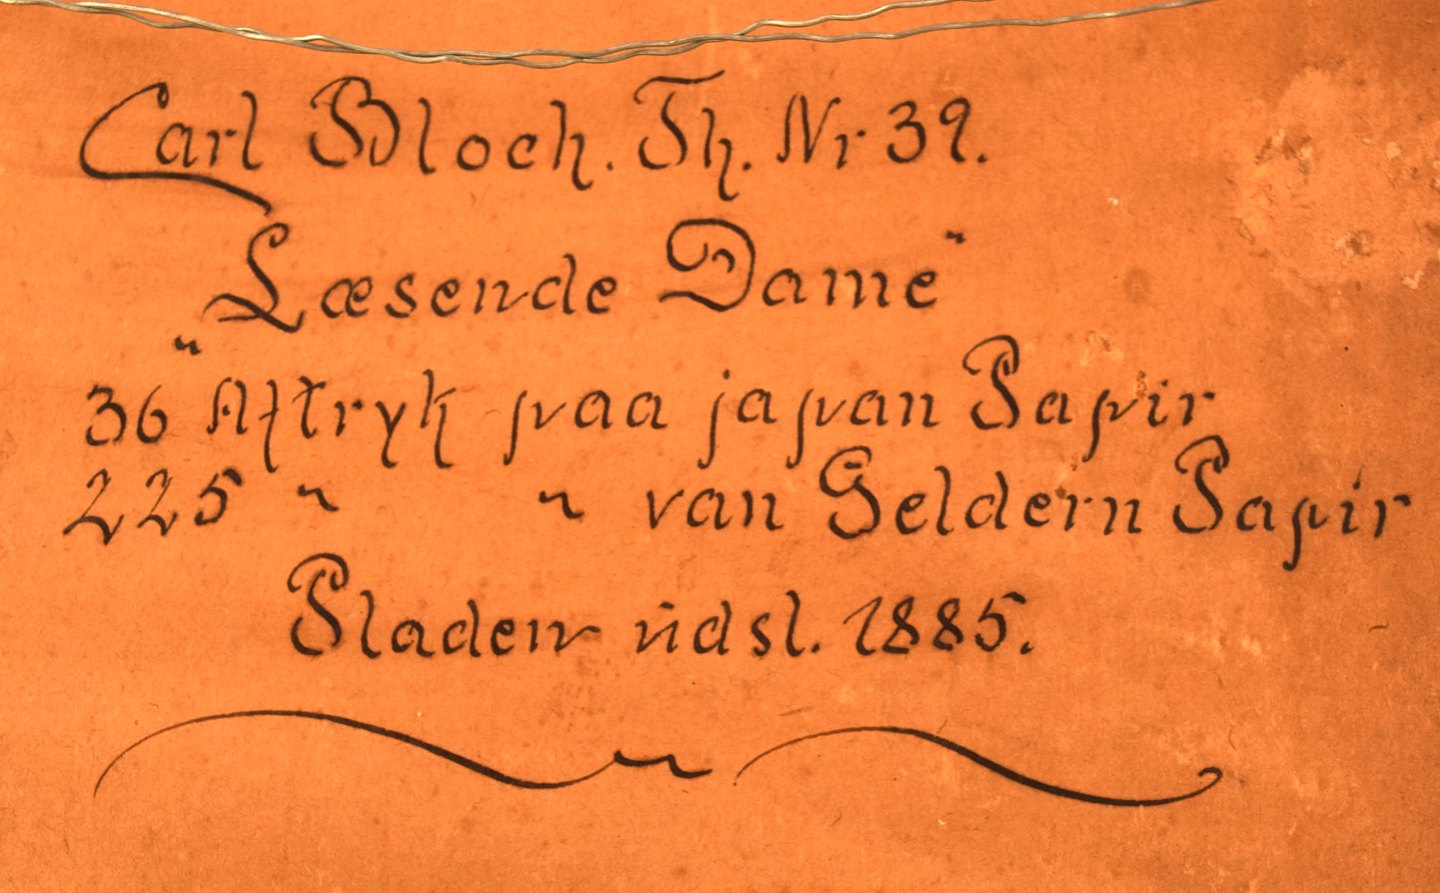 Carl Bloch. Th. Nr 39.
„Læsende Dame"
36 Aftryk paa japan Papir
225 " " van Geldern Papir
Pladen udsl. 1885.